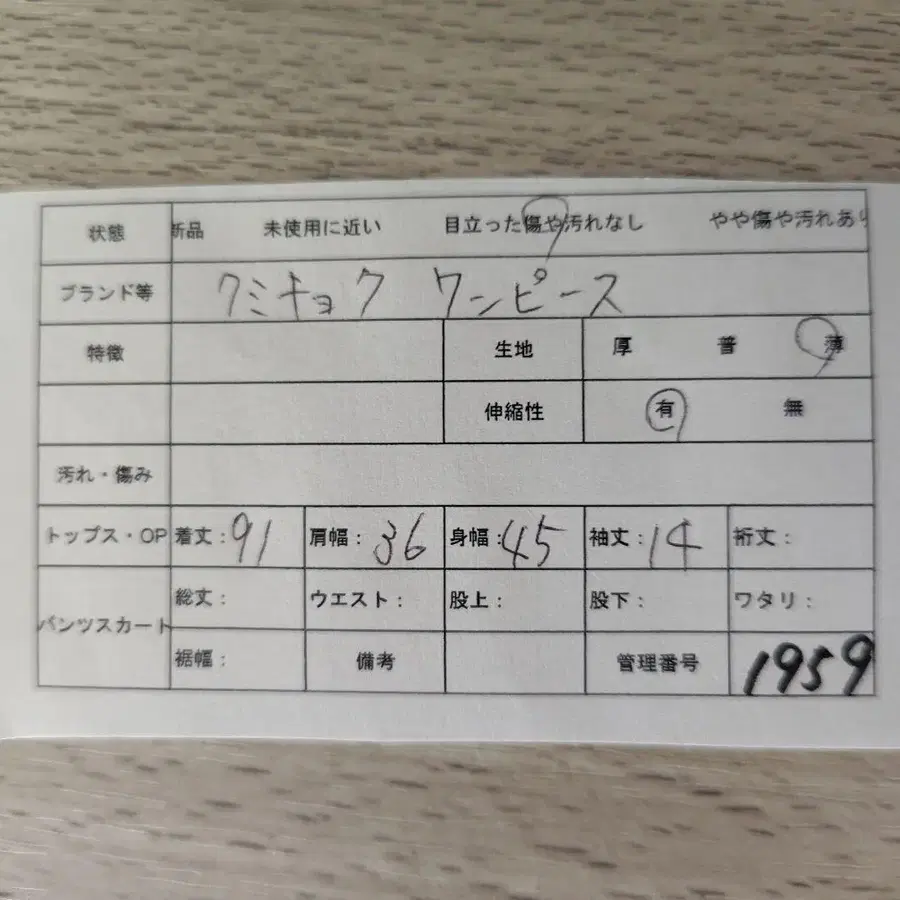 状態 新品 未使用に近い 目立った傷や汚れなし やや傷や汚れあり
ブランド等 クミキョク ワンピース
特徴 生地 厚 普 薄
伸縮性 有 無
汚れ・傷み
トップス・OP 着丈：91 肩幅：36 身幅：45 袖丈：14 裄丈：
パンツスカート 総丈： ウエスト： 股上： 股下： ワタリ：
裾幅： 備考 管理番号 1959